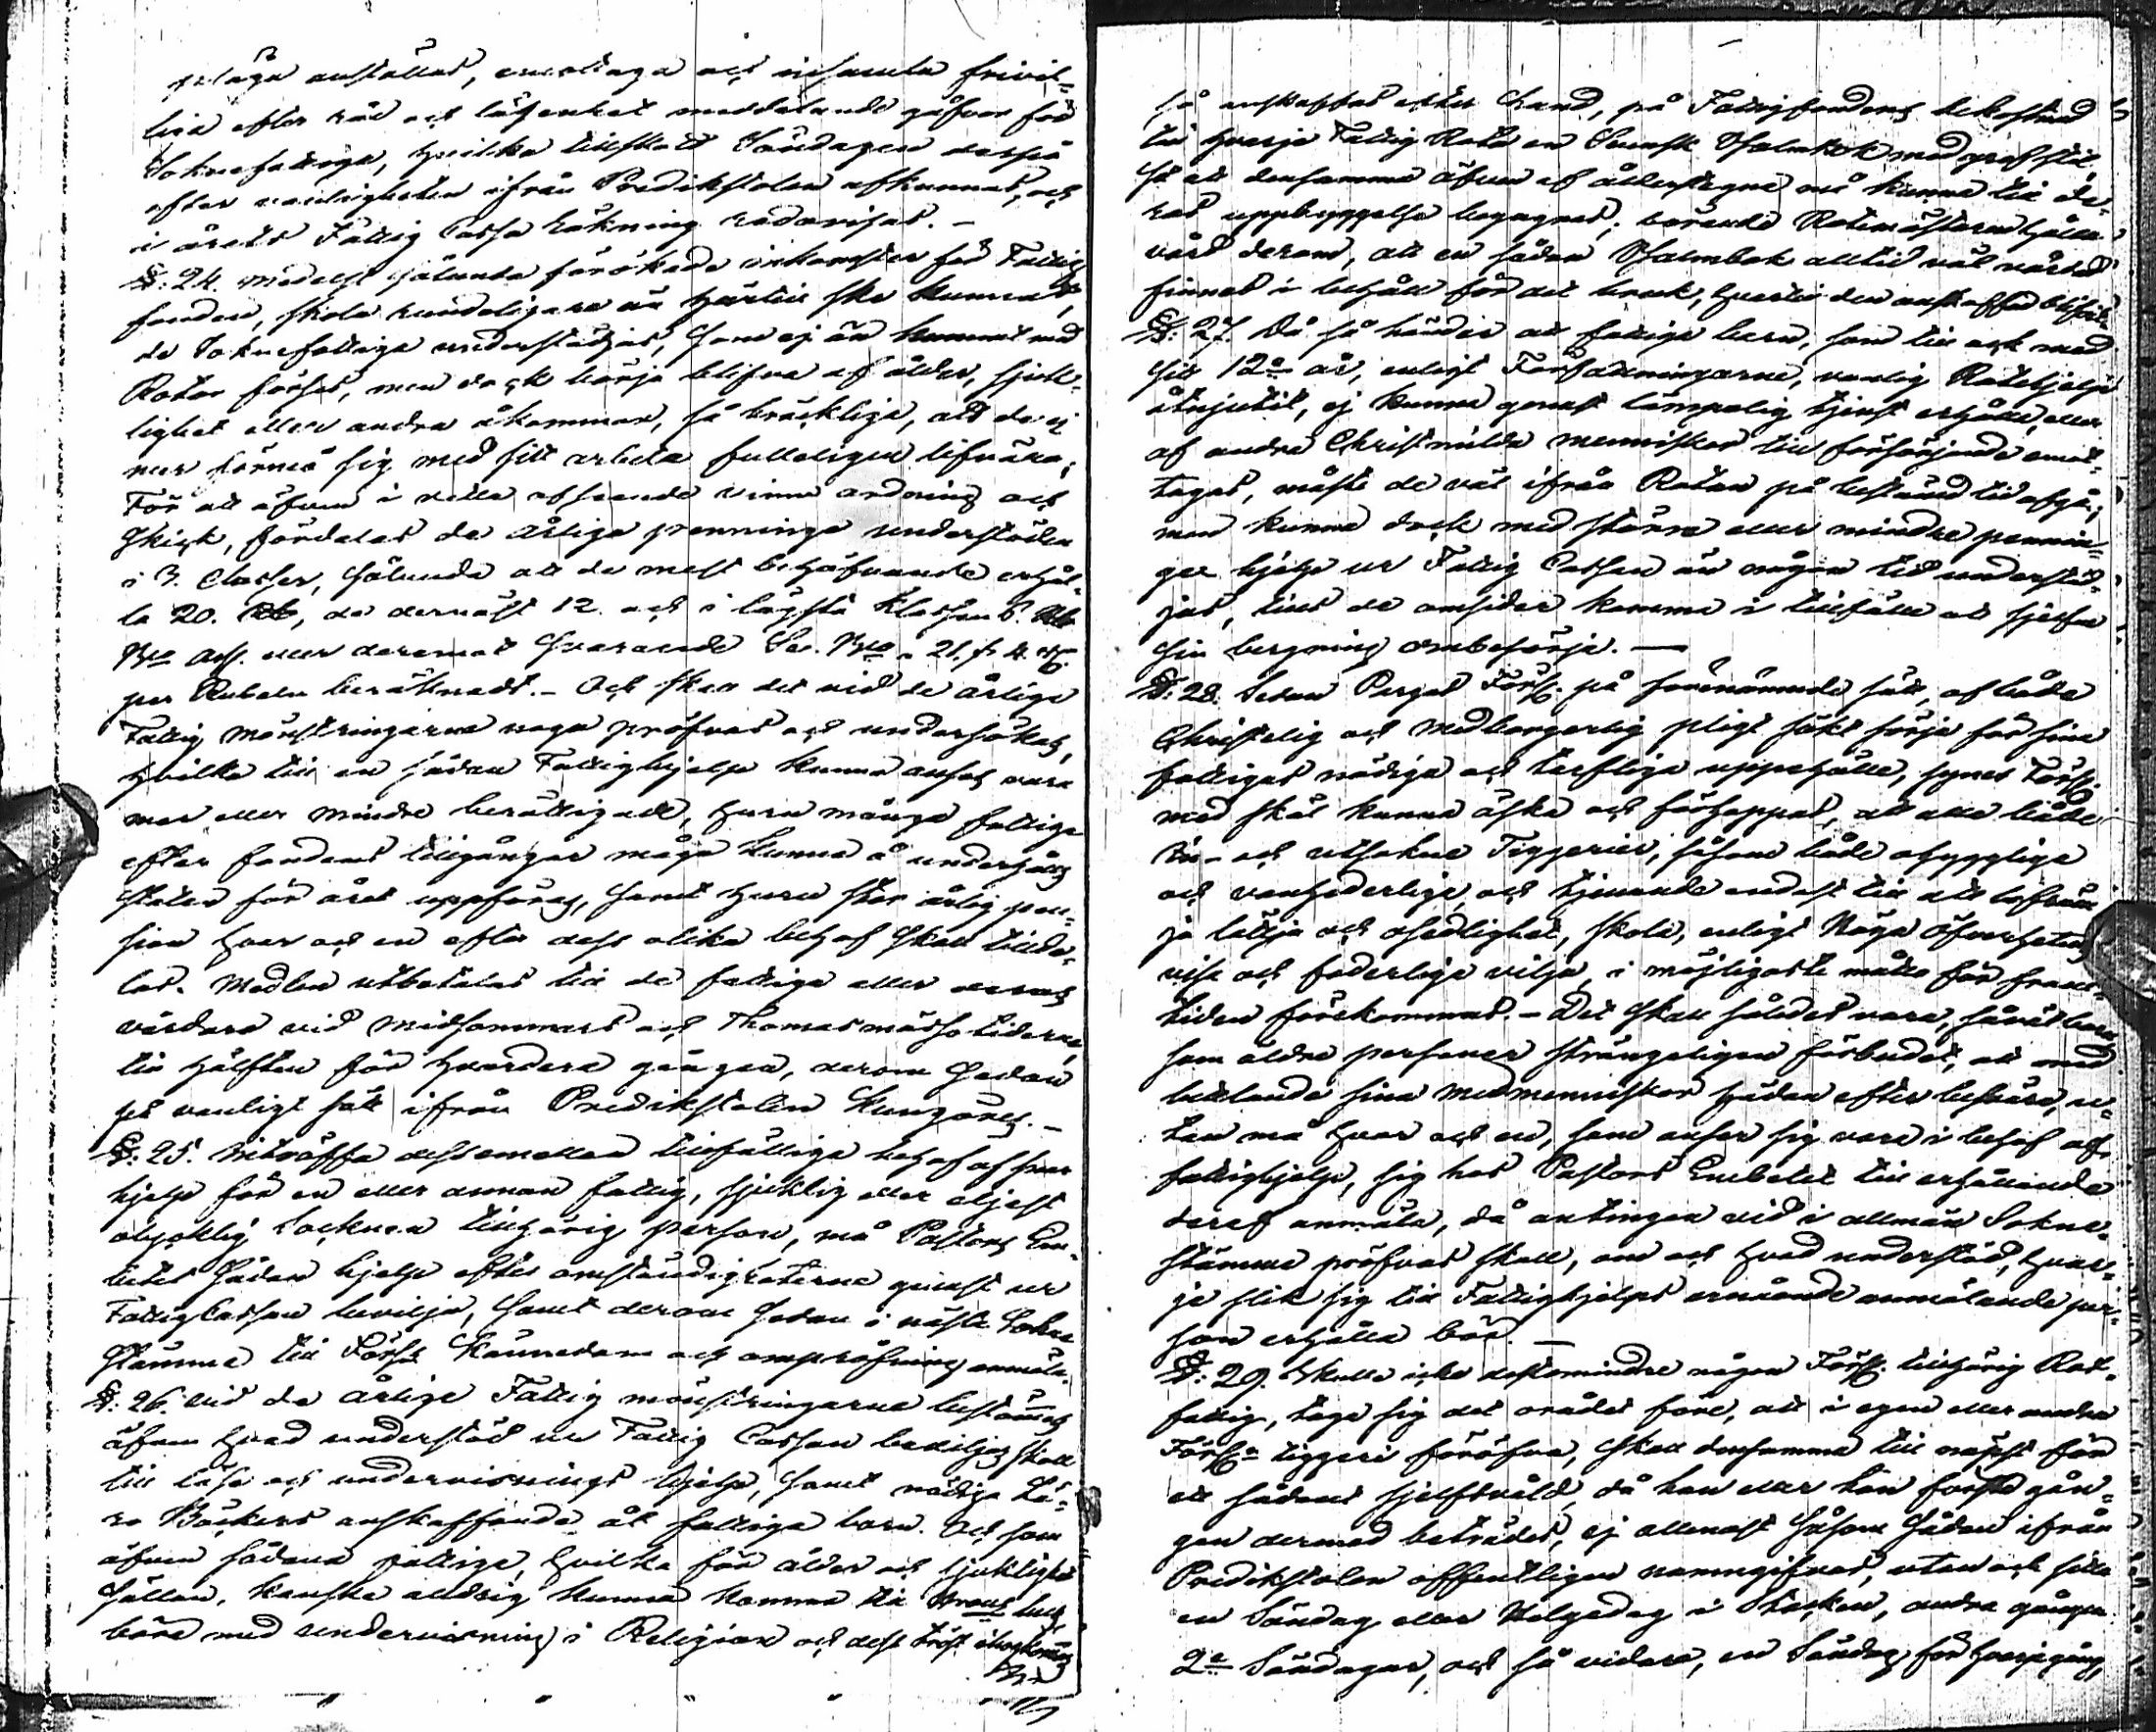 pläga anställas, emottaga och insamla frivil=
liga efter råd och lägenhet meddelande gåfvor för
Soknefattiga, hvilka tillika Söndagen derpå
efter vanligheten ifrån Predikstolen afkunnas, och
i årets Fattig Cassa räkning redovisas. —
§: 24. Medelst sålunda förökade inkomster för Fattig
fonden, skola rundeligare än härtills ske kunnat,
de Soknefattiga understödjas, som ej än kunnat med
Rotar förses, men dock börja blifva af ålder, sjuk=
lighet eller andra åkommor, så bräckliga, att de ej
mer förmå sig med sitt arbete fulleligen lifnära;
För att äfven i detta afseende vinna ordning och
skick, fördelas de årliga pennings understöden
i 3. Classer, sålunda att de mest behöfvande erhål=
la 20. Rub, de dernäst 12. och i lägsta Klassen 6. Rub
Bco Ass. eller deremot svarande Sv. Bco a 21. s. 4. rst.
per Rubeln beräknadt. — Och skall det vid de årliga
Fattig mönstringarne noga pröfvas och undersökas,
hvilka till en sådan Fattighjelp kunna anses vara
mer eller mindre berättigade, huru många fattige
efter fondens tillgångar måga kunna å underhålls
staten för året uppföras, samt huru stor årlig pen=
sion hvar och en efter dess olika behof skall tillde=
las. Medlen utbetalas till de fattiga eller deras
vårdare vid Midsommars och Thomasmässo tiderne,
till hälften för hvardera gången, derom sedan
på vanligt sätt ifrån Predikstolen kungöres. —
§: 25. Inträffa dessemellan tillfälliga behof af snar
hjelp för en eller annan fattig, sjuklig eller eljest
olycklig Socknen tillhörig person, må Pastors Em=
betet sådan hjelp efter omständigheterne genast ur
FattigCassan bevilja, samt derom sedan i näste Sokne
stämma till Förs: kännedom och ompröfning anmäla.
§: 26. Vid de årlige Fattig mönstringarne bestämmes
äfven hvad understöd ur Fattig Cassan beviljas skall
till läse och undervisnings hjelp, samt nödige Lä=
ro Böckers anskaffande åt fattiga barn. Och som
äfven sådana fattige, hvilka för ålder och sjuklighet
sällan, kanske aldrig kunna komma till Herrans hus,
böra med undervisning i Religion och dess tröst ihågkommas
så anskaffas efter hand, på Fattigfondens bekostnad
till hvarje Fattig Rote en Svensk Psalmbok med grof stil,
så att densamma äfven af ålderstegne må kunna till de=
ras uppbyggelse begagnas; börande Rotemästaren hålla
vård derom, att en sådan Psalmbok alltid väl vårdad
finnes i behåll för det bruk, hvartill den anskaffad blifvit.
§: 27. Då så händer att fattige barn, som till och med
sitt 12te år, enligt Författningarne, vanlig Rotehjelp
åtnjutit, ej kunna genast lämpelig tjenst erhålla, eller
af andra Christmilda menniskor till försörjande emot=
tagas, måste de väl ifrån Rotan på bestämd tid afgå;
men kunna dock med större eller mindre pennin=
ge hjelp ur Fattig Cassan än någon tid understöd=
jas, tills de omsider komma i tillfälle att sjelfva
sin bergning ombesörja. —
§: 28. Sedan Pargas Förs: på förenämnde sätt, af både
Christelig och Medborgerlig pligt sökt sörja för sine
fattigas nödiga och torftliga uppehälle, synes Förs:
med skäl kunna äska och förhoppas, att alla både
In- och utsokne Tiggerier, såsom både obygglige
och vanhederlige, och tjenande endast till att befräm
ja lättja och osedlighet, skola, enligt Höga Öfverhetens
vise och faderlige vilja, i möjligaste måtto för fram=
tiden förekommas. — Det skall således vara, såväl barn
som äldre personer strängeligen förbudet, att med
betlande sina Medmenniskor hädanefter besvära, u=
tan må hvar och en, som anser sig vara i behof af
fattighjelp, sig hos Pastors Embetet till erhållande
deraf anmäla, då antingen vid i allmän Sokne=
stämma pröfvas skall, om och hvad understöd, hvar=
je slik sig till Fattighjelps ernående anmälande per=
son erhålla bör. —
§: 29. Skulle icke destomindre någon Förs: tillhörig Rot=
fattig, taga sig det orådet före, att i egen eller andra
Förs:r tiggeri föröfva, skall densamma till näpst för
ett sådant sjelfsvåld, då han eller hon första gån=
gen dermed beträdes, ej allenast såsom sådan ifrån
Predikstolen offentligen namngifvas, utan och sitta
en Söndag eller Helgedag i Stocken, andra gången
2e Söndagar, och så vidare, en Söndag för hvarje gång,